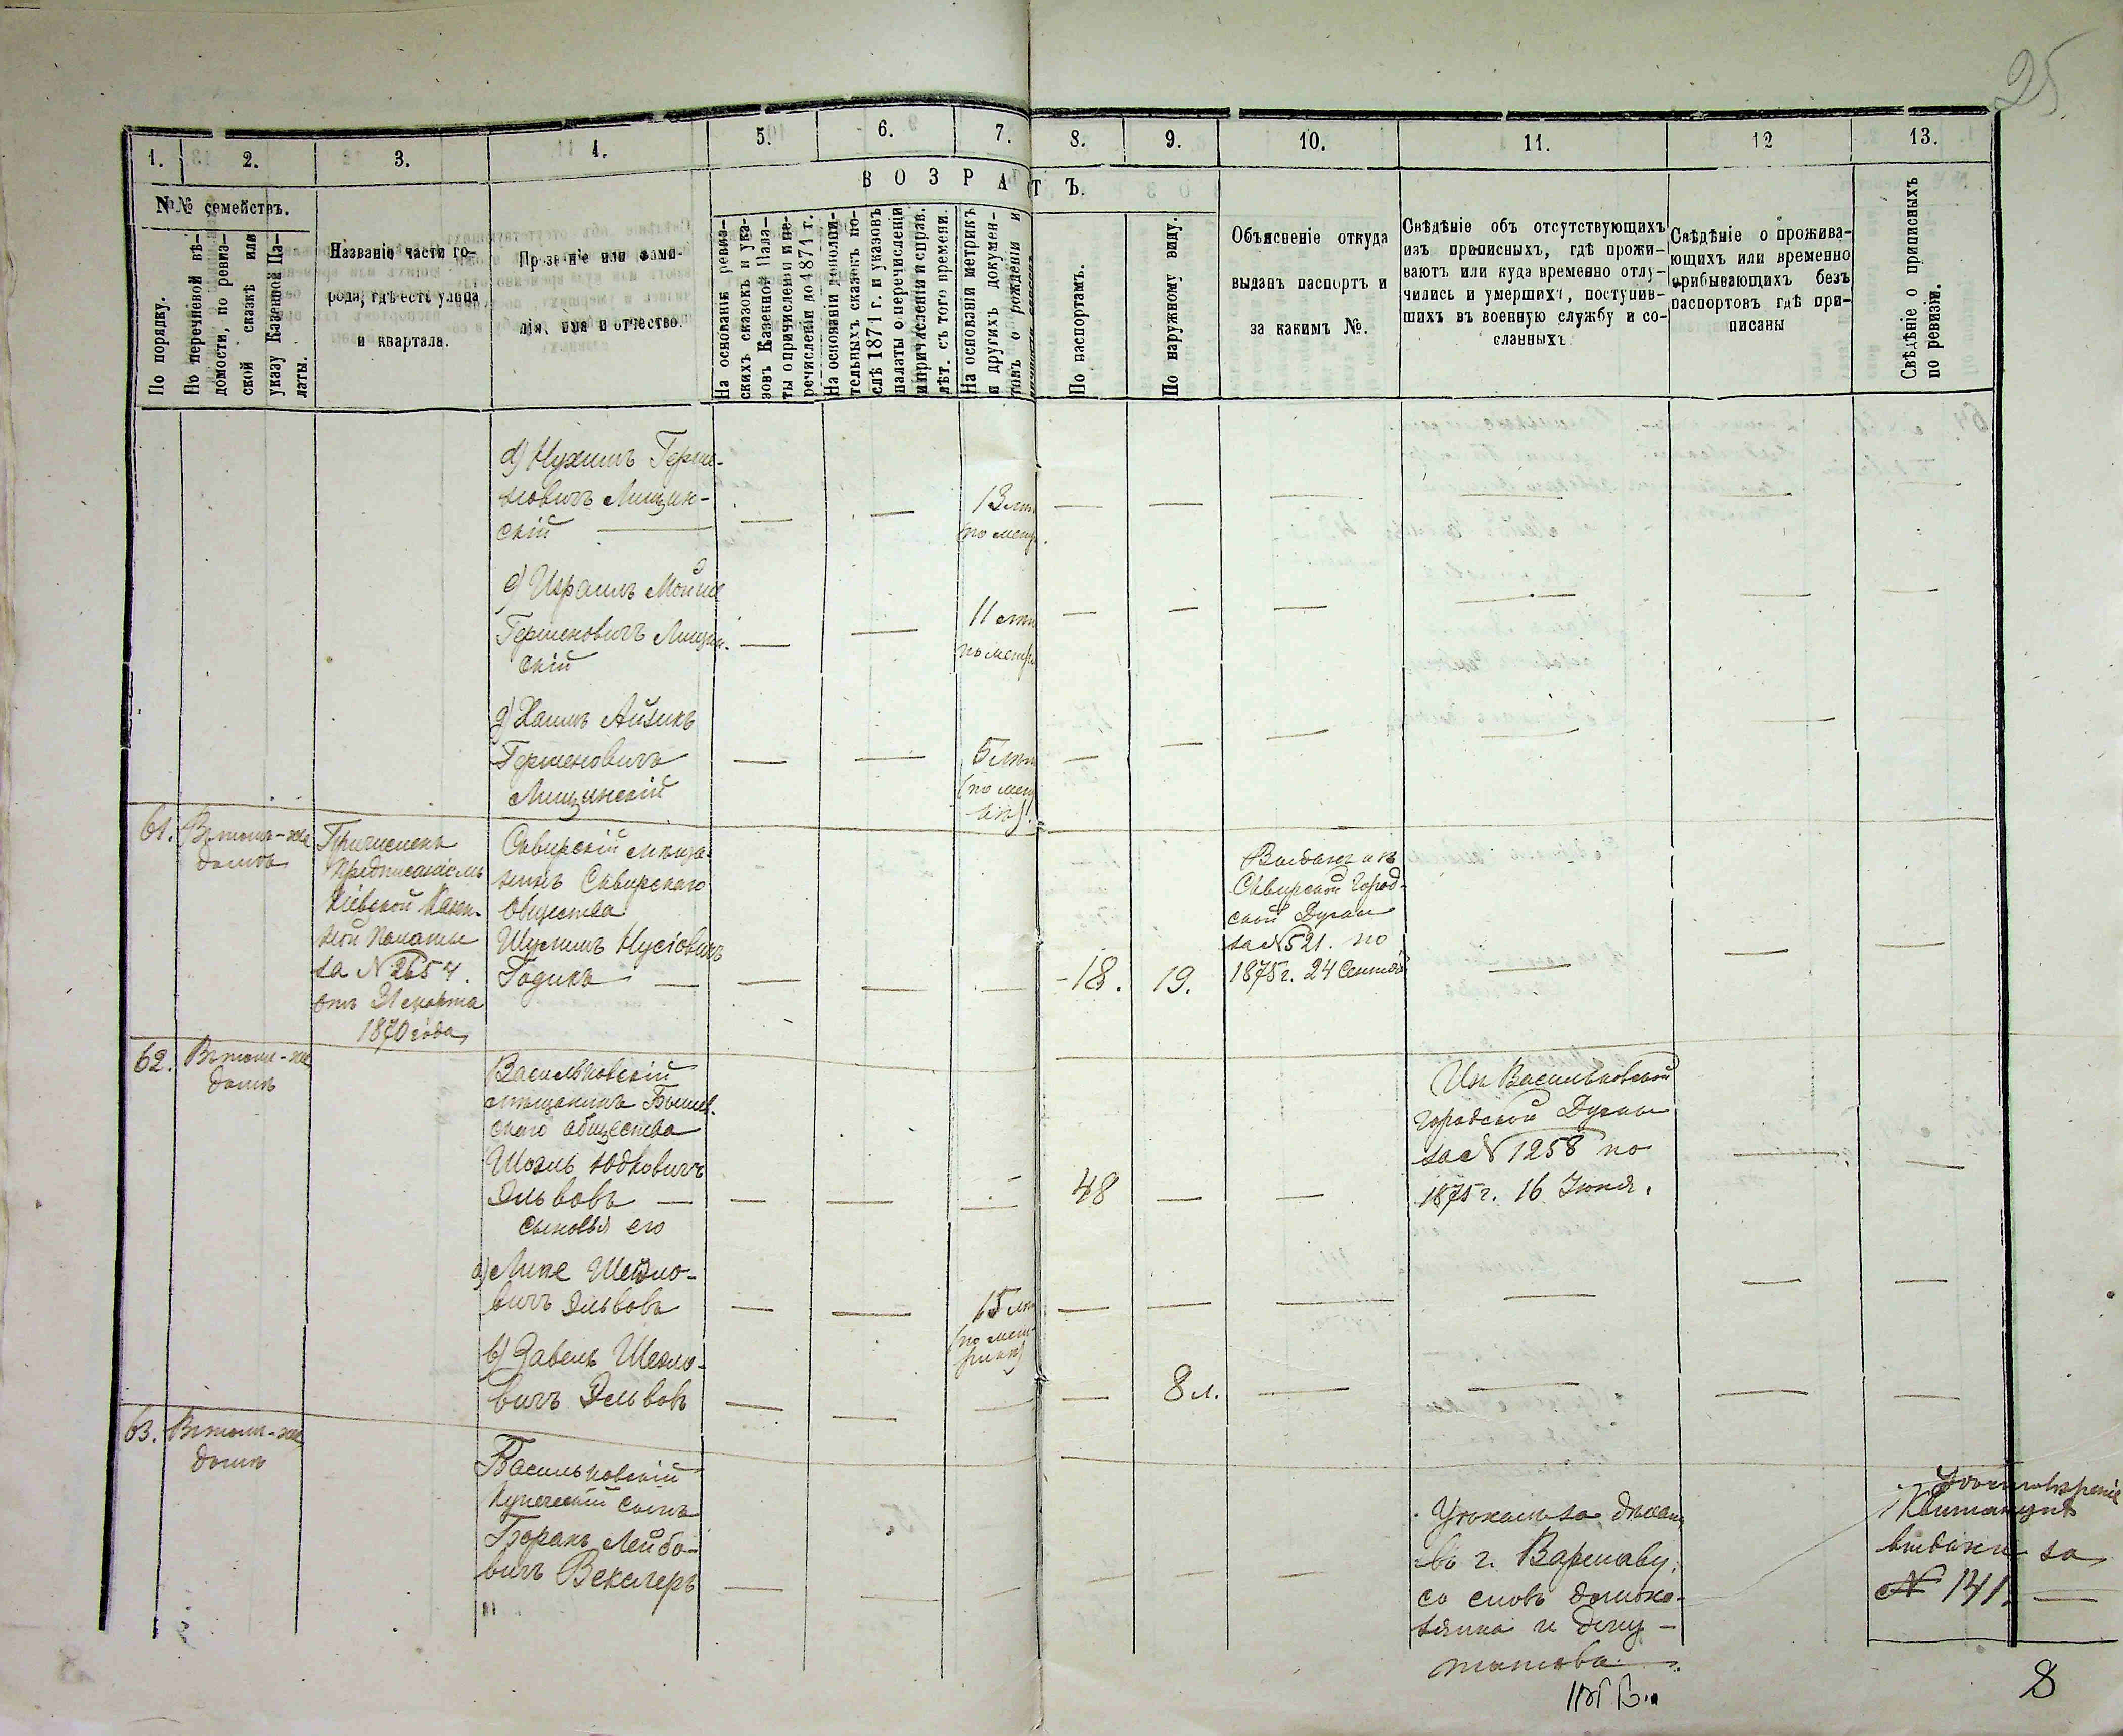 25
1. 2. 3. 4. 5. 6. 7. 8. 9. 10. 11. 12 13.
№№ семействъ.
По порядку.
По перечневой вѣ-
домости, по ревиз-
ской сказкѣ или
указу Казенной Па-
латы.
Названіе части го-
рода, гдѣ есть улица
и квартала.
Прозваніе или фами-
лія, имя и отчество.
ВОЗРАСТЪ.
На основаніи ревиз-
скихъ сказокъ и ука-
зовъ Казенной Пала-
ты о причисленіи и пе-
речисленіи до 1871 г.
На основаніи дополни-
тельныхъ сказокъ по-
слѣ 1871 г. и указовъ
палаты о перечисленіи
и причисленіи и справ.
лѣт. съ того времени.
На основаніи метрикъ
и другихъ докумен-
товъ о рожденіи и
По паспортамъ.
По наружному виду.
Объясненіе откуда
выданъ паспортъ и
за какимъ №.
Свѣдѣніе объ отсутствующихъ
изъ приписныхъ, гдѣ прожи-
ваютъ или куда временно отлу-
чились и умершихъ, поступив-
шихъ въ военную службу и со-
сланныхъ
Свѣдѣніе о прожива-
ющихъ или временно
прибывающихъ безъ
паспортовъ гдѣ при-
писаны
Свѣдѣніе о приписныхъ
по ревизіи.
d) Нухимъ Герше-
новичъ Лищин-
скій
13 лѣт
(по мет
e) Израиль Мойше
Гершеновичъ Лищин-
скій
11 лѣт
по метр
g) Хаимъ Айзикъ
Гершеновичъ
Лищинскій
5 лѣт
(по мет
61. Въ томъ-же
домѣ
Причисленъ
предписаніемъ
Кіевской Казен-
ной Палаты
за № 2654.
отъ 31 марта
1870 года
Сквирскій мѣща-
нинъ Сквирскаго
Общества
Шулимъ Нусіовичъ
Годика
18. 19.
Выданъ изъ
Сквирской Город-
ской Думы
за № 521. по
1875 г. 24 Сентяб
62. Въ томъ-же
домѣ
Васильковскій
мѣщанинъ Бышев-
скаго общества
Шозль Юдковичъ
Эльвовъ
48
Изъ Васильковской
городской Думы
за № 1258 по
1875 г. 16 Іюня.
сыновья его
а) Липе Шозло-
вичъ Эльвовъ
15 лѣт
(по мет-
рикѣ)
b) Завель Шозло-
вичъ Эльвовъ
8 л.
63. Въ томъ-же
домѣ
Васильковскій
Купеческій сынъ
Борахъ Лейбо-
вичъ Векслеръ
Уѣхалъ за
въ г. Варшаву,
со словъ домохо-
зяина и депу-
татова
Удостовѣреніе
Квитанція
выдана за
№ 141.
8